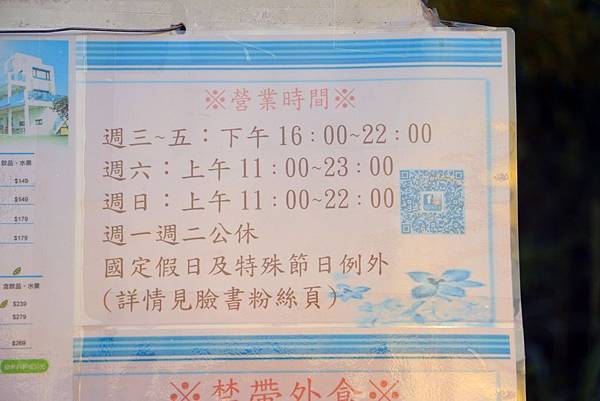 ※營業時間※
週三~五：下午16：00~22：00
週六：上午11：00~23：00
週日：上午11：00~22：00
週一週二公休
國定假日及特殊節日例外
(詳情見臉書粉絲頁)
※禁帶外食※
飲品、水果
$149
$149
$179
$179
含飲品、水果
$239
$279
$269